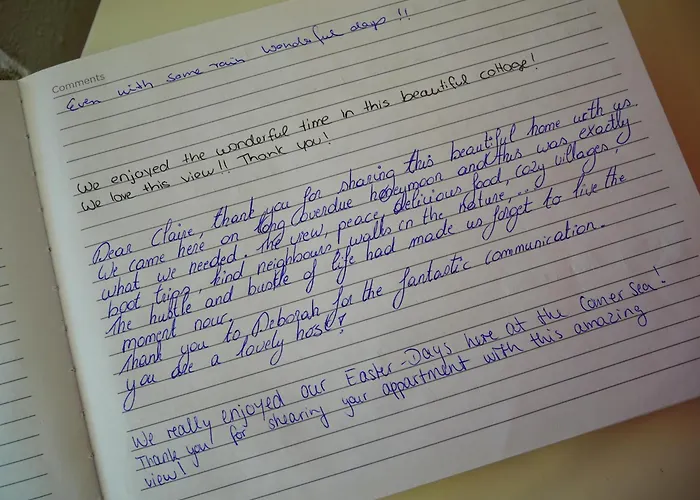 Comments
Even with some rain wonderful days !!
We enjoyed the wonderful time in this beautiful cottage!
We love this view!! Thank you!
Dear Claire, thank you for sharing this beautiful home with us.
We came here on long overdue honeymoon and this was exactly
what we needed. The view, peace, delicious food, cozy villages,
boot tripp, kind neighbours, walks in the nature,...
The hustle and bustle of life had made us forget to live the
moment now.
Thank you to Deborah for the fantastic communication.
you are a lovely host!
We really enjoyed our Easter-Days here at the Comer Sea!
Thank you for shearing your appartment with this amazing
view!